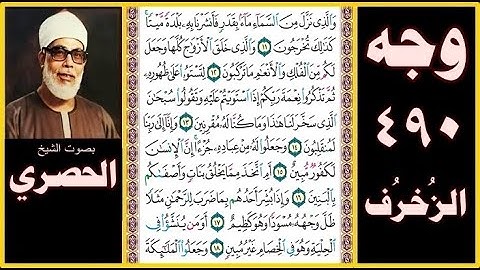 وجه
٤٩٠
الزُخرُف
وَالَّذِى نَزَّلَ مِنَ السَّمَاءِ مَاءً بِقَدَرٍ فَأَنشَرْنَا بِهِ بَلْدَةً مَّيْتًا
كَذَٰلِكَ تُخْرَجُونَ ١١ وَالَّذِى خَلَقَ الْأَزْوَٰجَ كُلَّهَا وَجَعَلَ
لَكُم مِّنَ الْفُلْكِ وَالْأَنْعَٰمِ مَا تَرْكَبُونَ ١٢ لِتَسْتَوُۥا عَلَىٰ ظُهُورِهِ
ثُمَّ تَذْكُرُوا نِعْمَةَ رَبِّكُمْ إِذَا اسْتَوَيْتُمْ عَلَيْهِ وَتَقُولُوا سُبْحَٰنَ
الَّذِى سَخَّرَ لَنَا هَٰذَا وَمَا كُنَّا لَهُ مُقْرِنِينَ ١٣ وَإِنَّا إِلَىٰ رَبِّنَا
لَمُنقَلِبُونَ ١٤ وَجَعَلُوا لَهُ مِنْ عِبَادِهِ جُزْءًا إِنَّ الْإِنسَٰنَ
لَكَفُورٌ مُّبِينٌ ١٥ أَمِ اتَّخَذَ مِمَّا يَخْلُقُ بَنَاتٍ وَأَصْفَىٰكُم
بِالْبَنِينَ ١٦ وَإِذَا بُشِّرَ أَحَدُهُم بِمَا ضَرَبَ لِلرَّحْمَٰنِ مَثَلًا
ظَلَّ وَجْهُهُ مُسْوَدًّا وَهُوَ كَظِيمٌ ١٧ أَوَمَن يُنَشَّؤُا فِى
الْحِلْيَةِ وَهُوَ فِى الْخِصَامِ غَيْرُ مُبِينٍ ١٨ وَجَعَلُوا الْمَلَٰٓئِكَةَ
بصوت الشيخ
الحصري